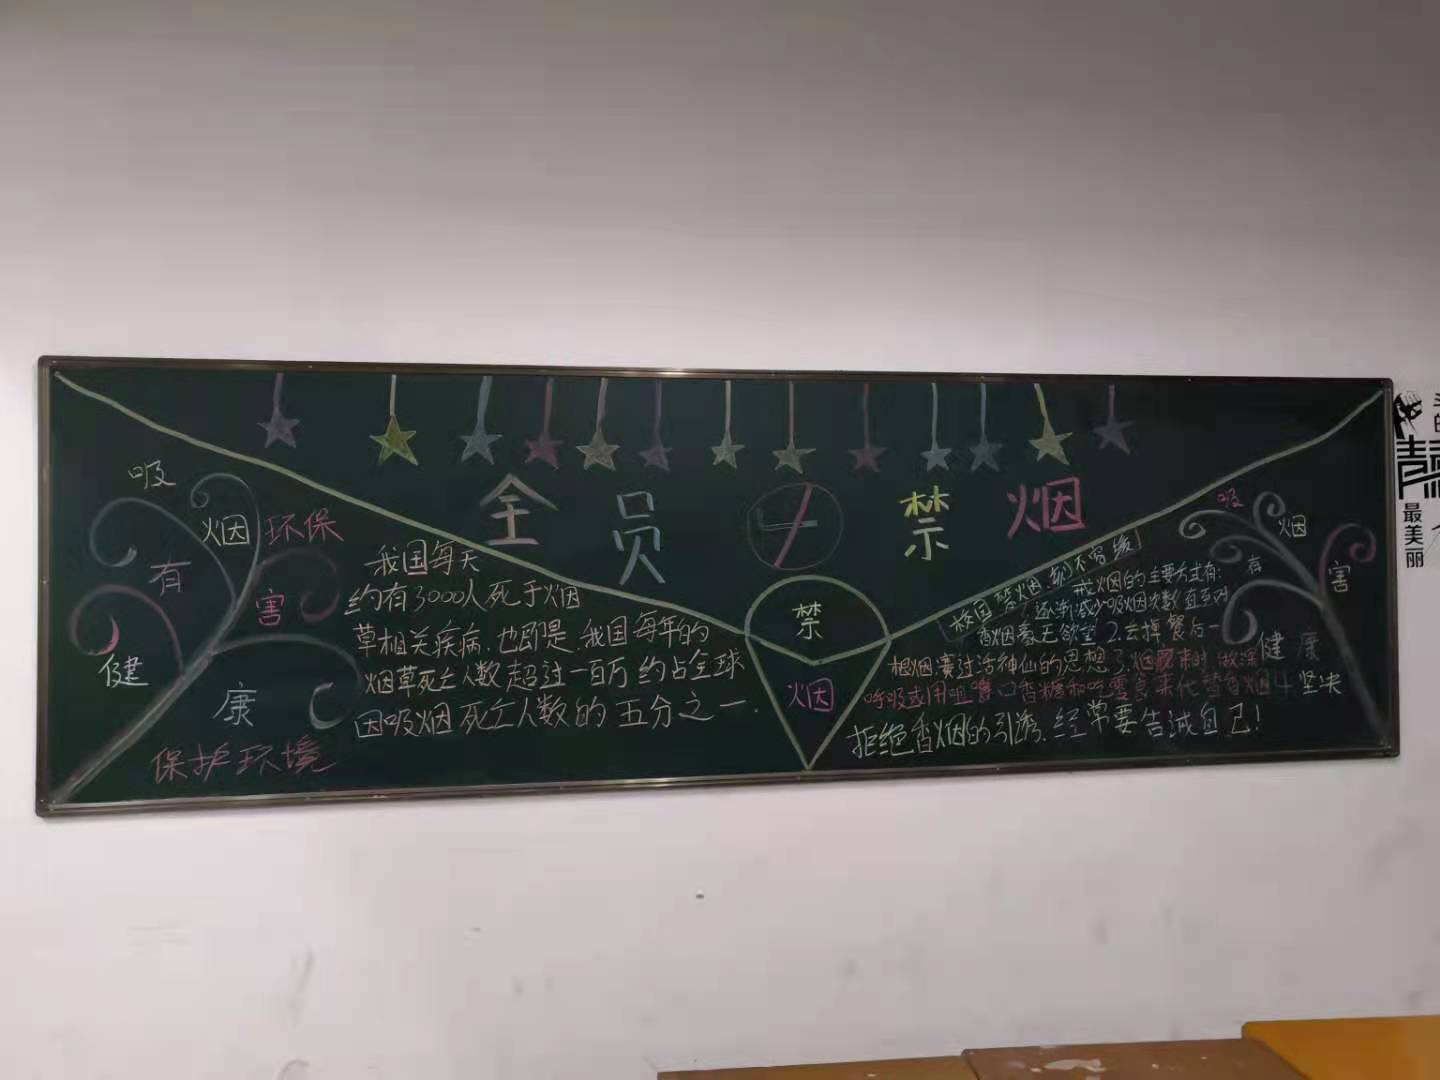 全员禁烟
吸
烟
有
害
健
康
环保
保护环境
我国每天
约有3000人死于烟
草相关疾病.也即是.我国每年的
烟草死亡人数超过一百万约占全球
因吸烟死亡人数的五分之一.
禁
烟
校园禁烟.刻不容缓
戒烟的主要方式有:
逐渐减少吸烟次数直至对
香烟毫无欲望 2.去掉餐后一
根烟.赛过活神仙的思想 3.烟瘾来时.做深
呼吸或用咀嚼口香糖和吃零食来代替香烟 4.坚决
拒绝香烟的引诱.经常要告诫自己!
吸
烟
有
害
健
康
最美丽